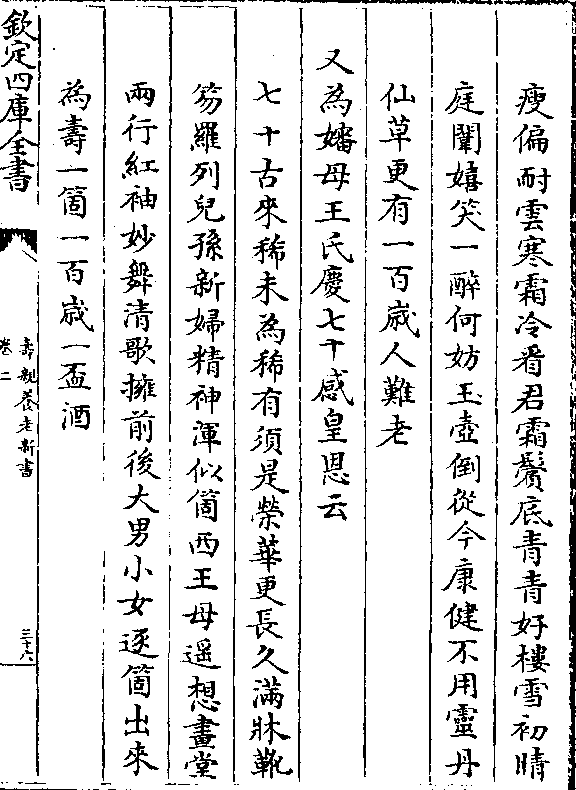 瘦偏耐雲寒霜冷看君霜鬢底青青好樓雪初晴
庭闈嬉笑一醉何妨玉壺倒從今康健不用靈丹
仙草更有一百歲人難老
又為嬸母王氏慶七十感皇恩云
七十古來稀未為稀有須是榮華更長久滿牀靴
笏羅列兒孫新婦精神渾似箇西王母遥想畫堂
兩行紅袖妙舞清歌擁前後大男小女逐箇出來
為壽一箇一百歲一盃酒
欽定四庫全書
壽親養老新書
卷二
三十六